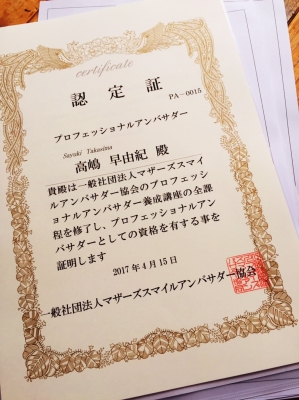 certificate
認定証
PA-0015
プロフェッショナルアンバサダー
Sayuki Takasima
高嶋 早由紀 殿
貴殿は一般社団法人マザーズスマイ
ルアンバサダー協会のプロフェッシ
ョナルアンバサダー養成講座の全課
程を修了し、プロフェッショナルアン
バサダーとしての資格を有する事を
証明します
2017年4月15日
一般社団法人マザーズスマイルアンバサダー協会